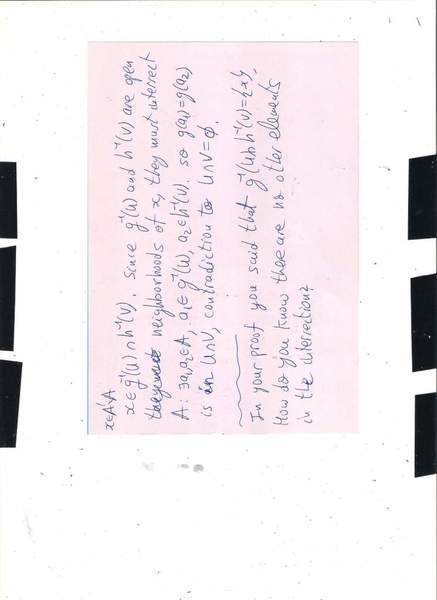 x∈A'\A
x∈g⁻¹(U)∩h⁻¹(V). Since g⁻¹(U) and h⁻¹(V) are open
neighborhoods of x, they must interrect
A: ∃a₁,a₂∈A, a₁∈g⁻¹(U), a₂∈h⁻¹(V). so g(a₁)=g(a₂)
is in U∩V, contradiction to U∩V=∅.
In your proof you said that g⁻¹(U)∩h⁻¹(V)={x}.
How do you know there are no other elements
in the interrection?